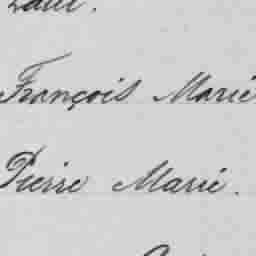 François Marie
Pierre Marie.